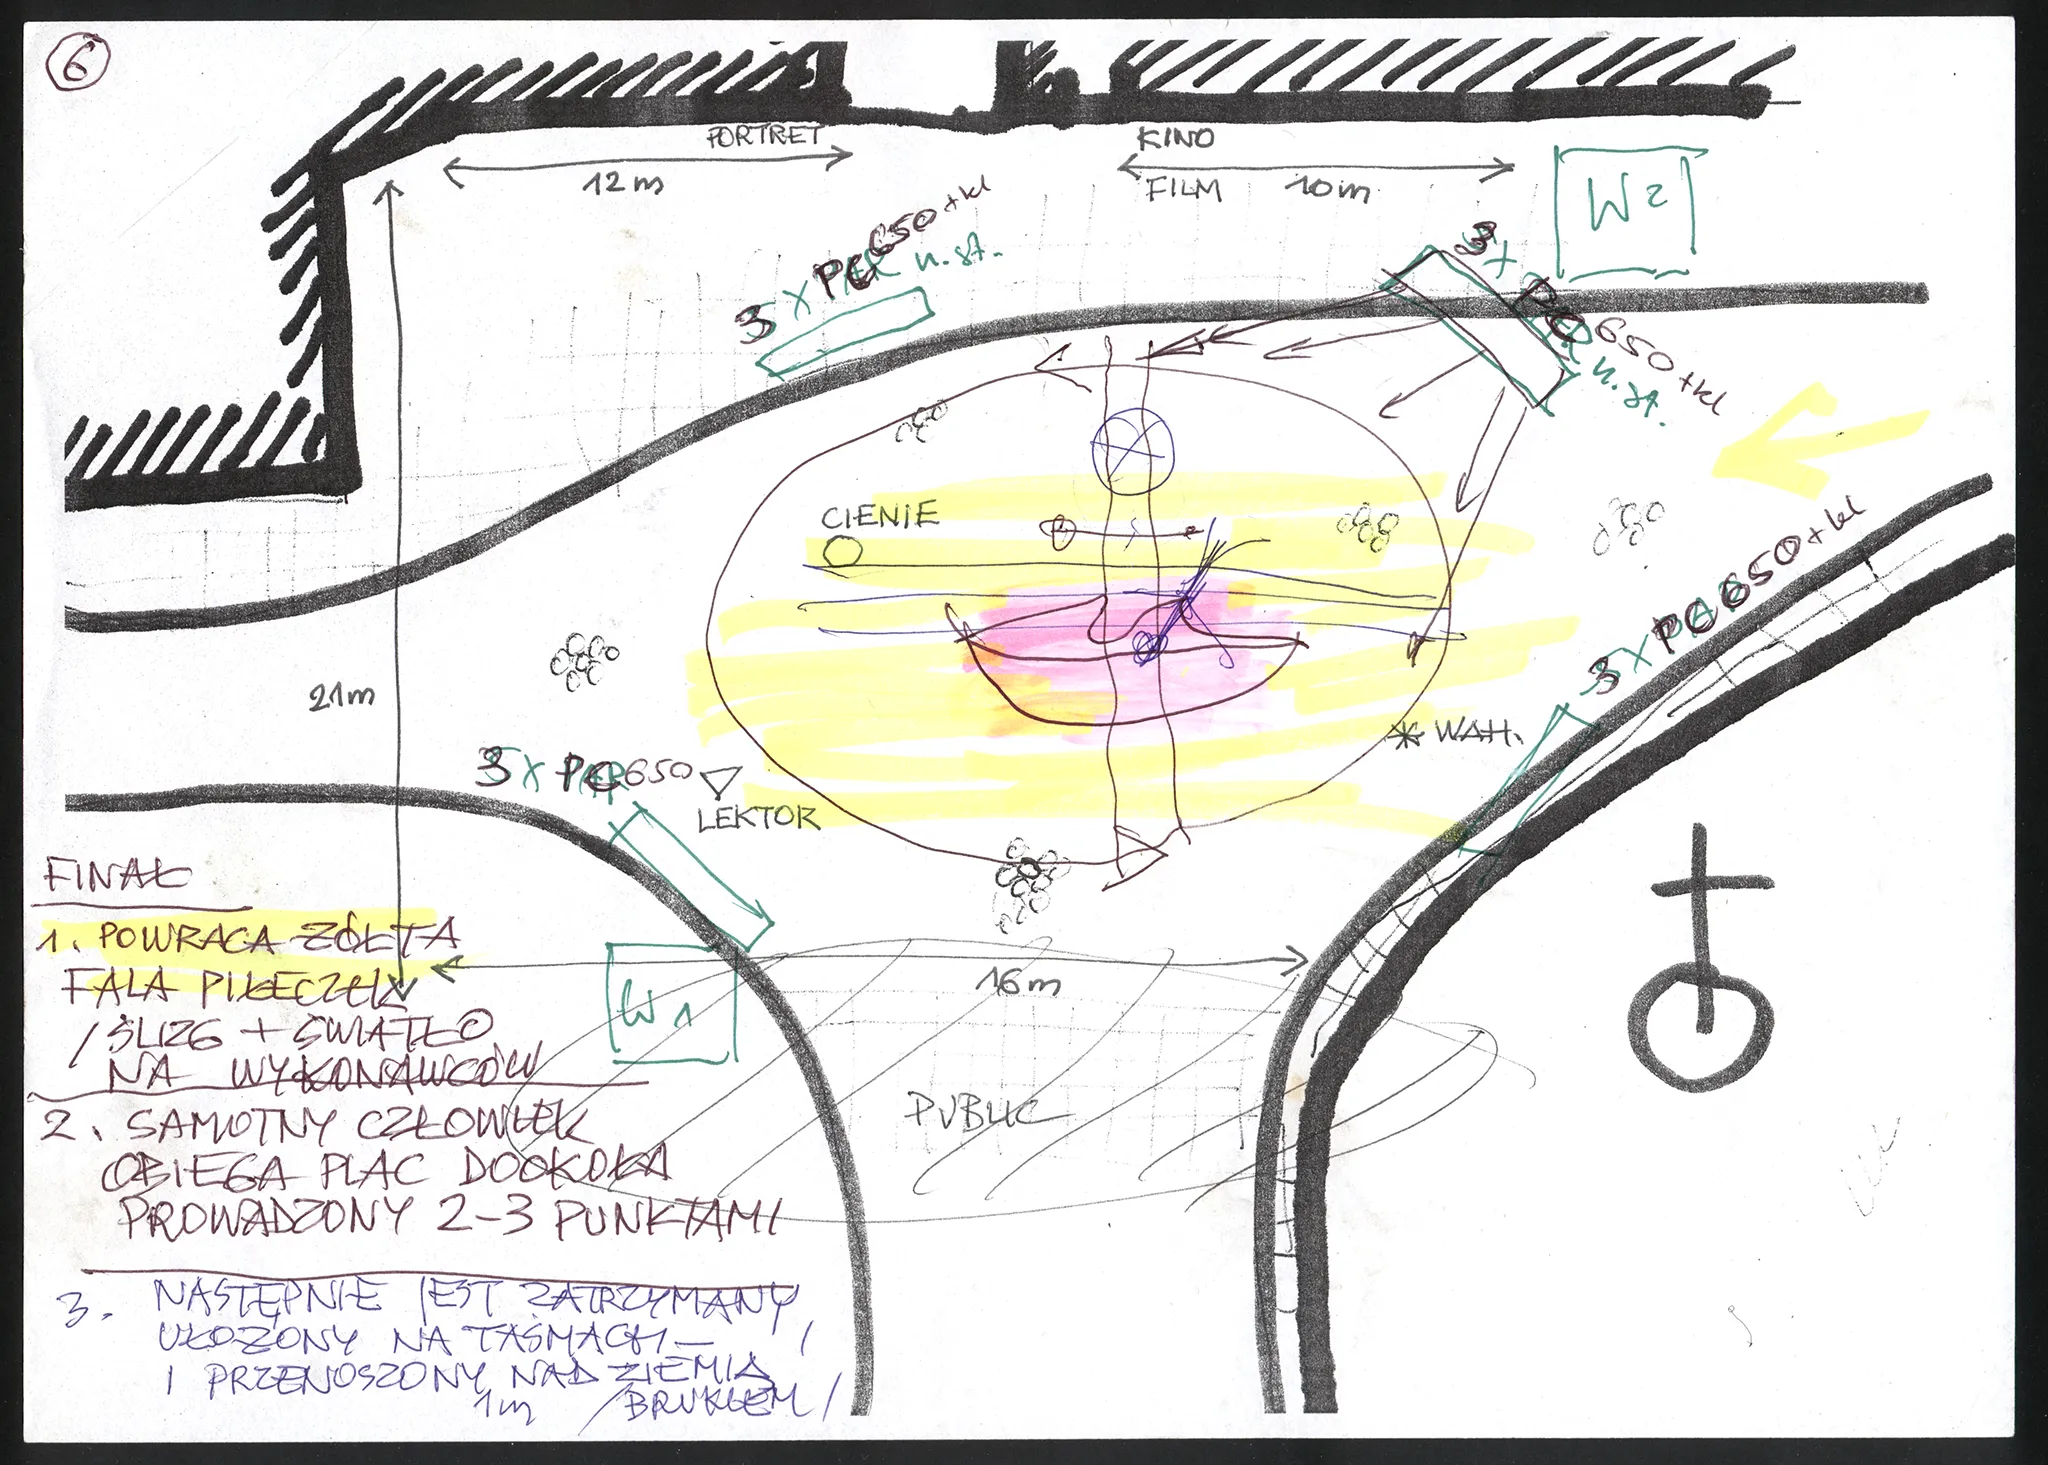 6
PORTRET
12m
KINO
FILM 10m
W2
3 X PC 650 +kl
n. st.
3 X
PC 650 +kl
n. st.
CIENIE
3 X PC 650 +kl
21m
WAH.
3 X PC 650
LEKTOR
FINAŁ
1. POWRACA ŻÓŁTA
FALA PIŁECZEK
/ŚLIZG + ŚWIATŁO
NA WYKONAWCÓW
16m
W1
PUBLIC
2. SAMOTNY CZŁOWIEK
OBIEGA PLAC DOOKOŁA
PROWADZONY 2-3 PUNKTAMI
3. NASTĘPNIE JEST ZATRZYMANY
UŁOŻONY NA TAŚMACH – /
I PRZENOSZONY NAD ZIEMIĄ
1m /BRUKIEM/